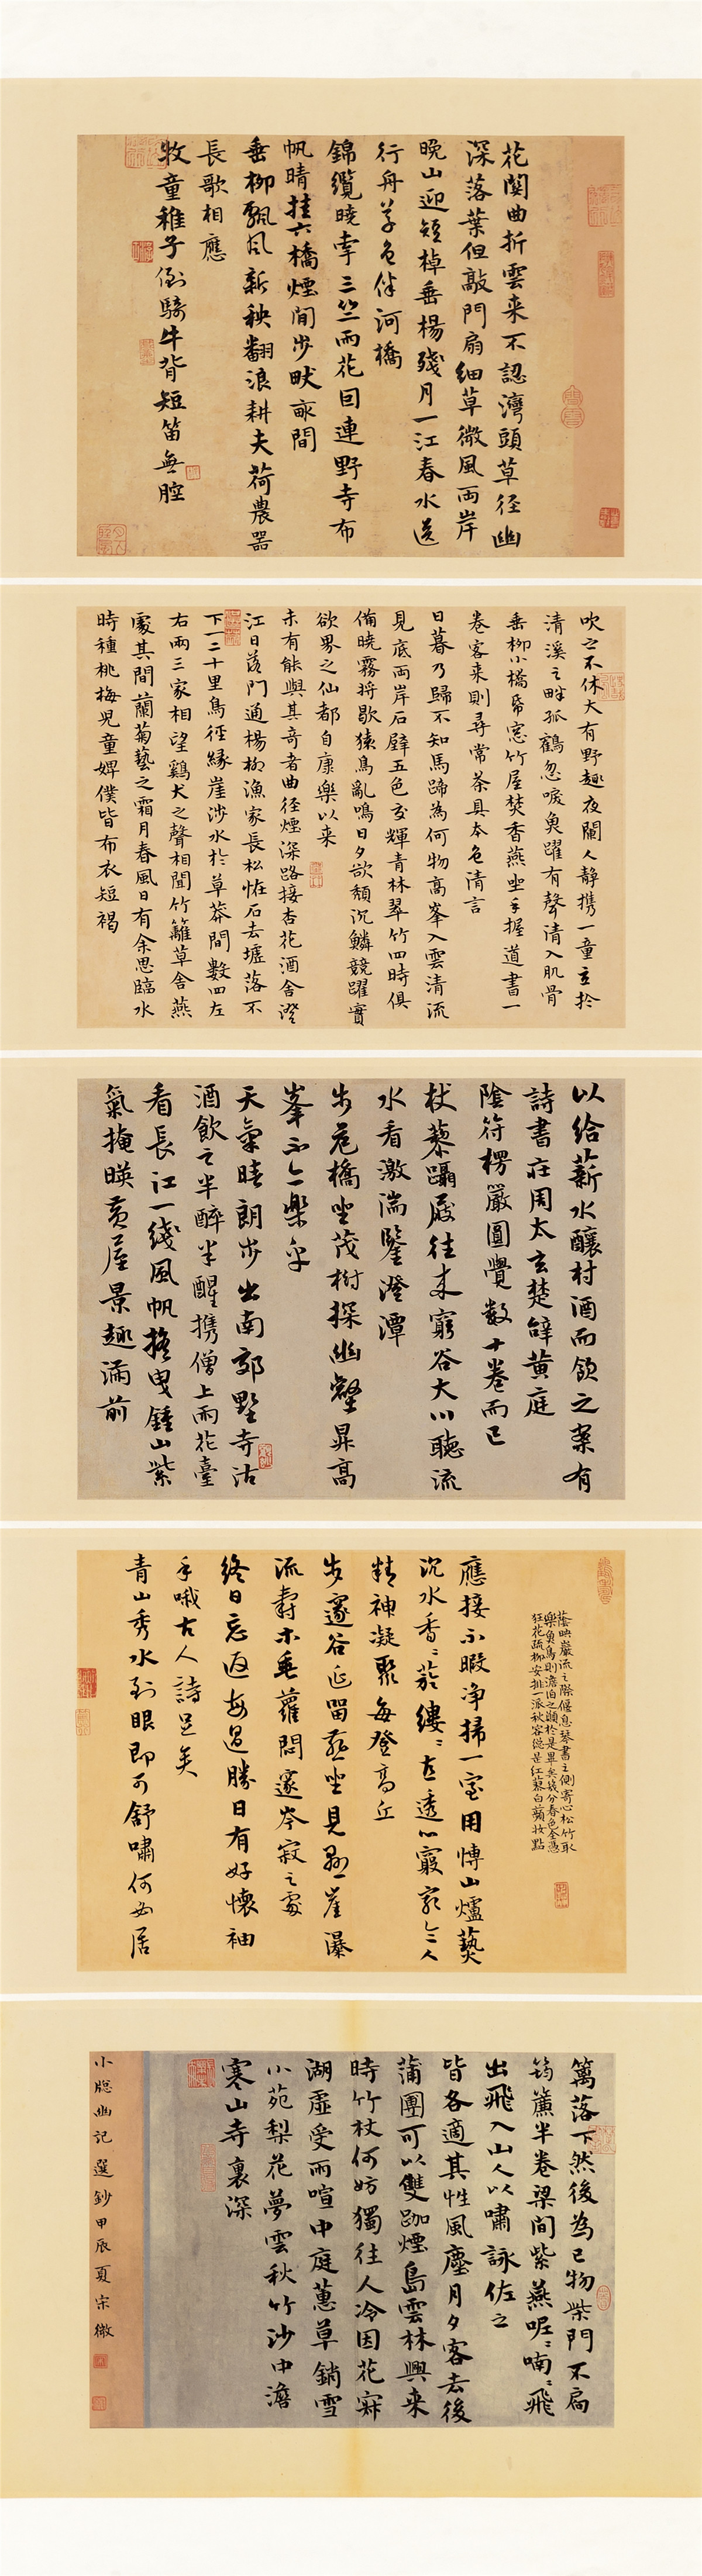 花關曲折雲来不認灣頭草徑幽
深落葉但敲門扇細草微風兩岸
晚山迎短棹垂楊殘月一江春水送
行舟草色伴河橋
錦纜曉牽三竺雨花回連野寺布
帆晴挂六橋煙閒步畎畝間
垂柳飄風新秧翻浪耕夫荷農器
長歌相應
牧童稚子倒騎牛背短笛無腔
吹之不休大有野趣夜闌人静携一童立於
清溪之畔孤鶴忽唳魚躍有聲清入肌骨
垂柳小橋帋窓竹屋焚香燕坐手握道書一
卷客来則尋常茶具本色清言
日暮乃歸不知馬蹄為何物高峯入雲清流
見底兩岸石壁五色交輝青林翠竹四時俱
備曉霧将歇猿鳥亂鳴日夕欲頹沉鱗競躍實
欲界之仙都自康樂以来
未有能與其奇者曲径煙深路接杏花酒舍澄
江日落門通楊柳漁家長松怪石去墟落不
下一二十里鳥徑緣崖涉水於草莽間數四左
右兩三家相望鷄犬之聲相聞竹籬草舍燕
處其間蘭菊藝之霜月春風日有余思臨水
時種桃梅児童婢僕皆布衣短褐
以給薪水釀村酒而飲之案有
詩書莊周太玄楚辭黄庭
陰符楞嚴圓覺数十卷而已
杖藜躡屐往来窮谷大川聽流
水看激湍鑒澄潭
步危橋坐茂樹探幽壑昇高
峯不亦樂乎
天氣晴朗步出南郊野寺沽
酒飲之半醉半醒携僧上雨花臺
看長江一綫風帆摇曳鍾山紫
氣掩暎黄屋景趣滿前
蔭映巖流之際偃息琴書之側寄心松竹取
樂魚鳥則澹泊之願於是畢矣幾分春色全憑
狂花疏柳安排一派秋容總是紅蓼白蘋妝點
應接不暇浄掃一室用博山爐爇
沉水香香菸縷縷直透心竅最令人
精神凝聚每登高丘
步邃谷延留燕坐見懸崖瀑
流壽木垂蘿閟邃岑寂之處
終日忘返每遇勝日有好懷袖
手哦古人詩足矣
青山秀水到眼即可舒嘯何必居
籬落下然後為己物柴門不扃
筠簾半卷梁間紫燕呢呢喃喃飛
出飛入山人以嘯詠佐之
皆各適其性風塵月夕客去後
蒲團可以雙跏煙島雲林興来
時竹杖何妨獨往人冷因花寂
湖虚受雨喧中庭蕙草銷雪
小苑梨花夢雲秋竹沙中澹
寒山寺裏深
小窓幽記選鈔甲辰夏宗微